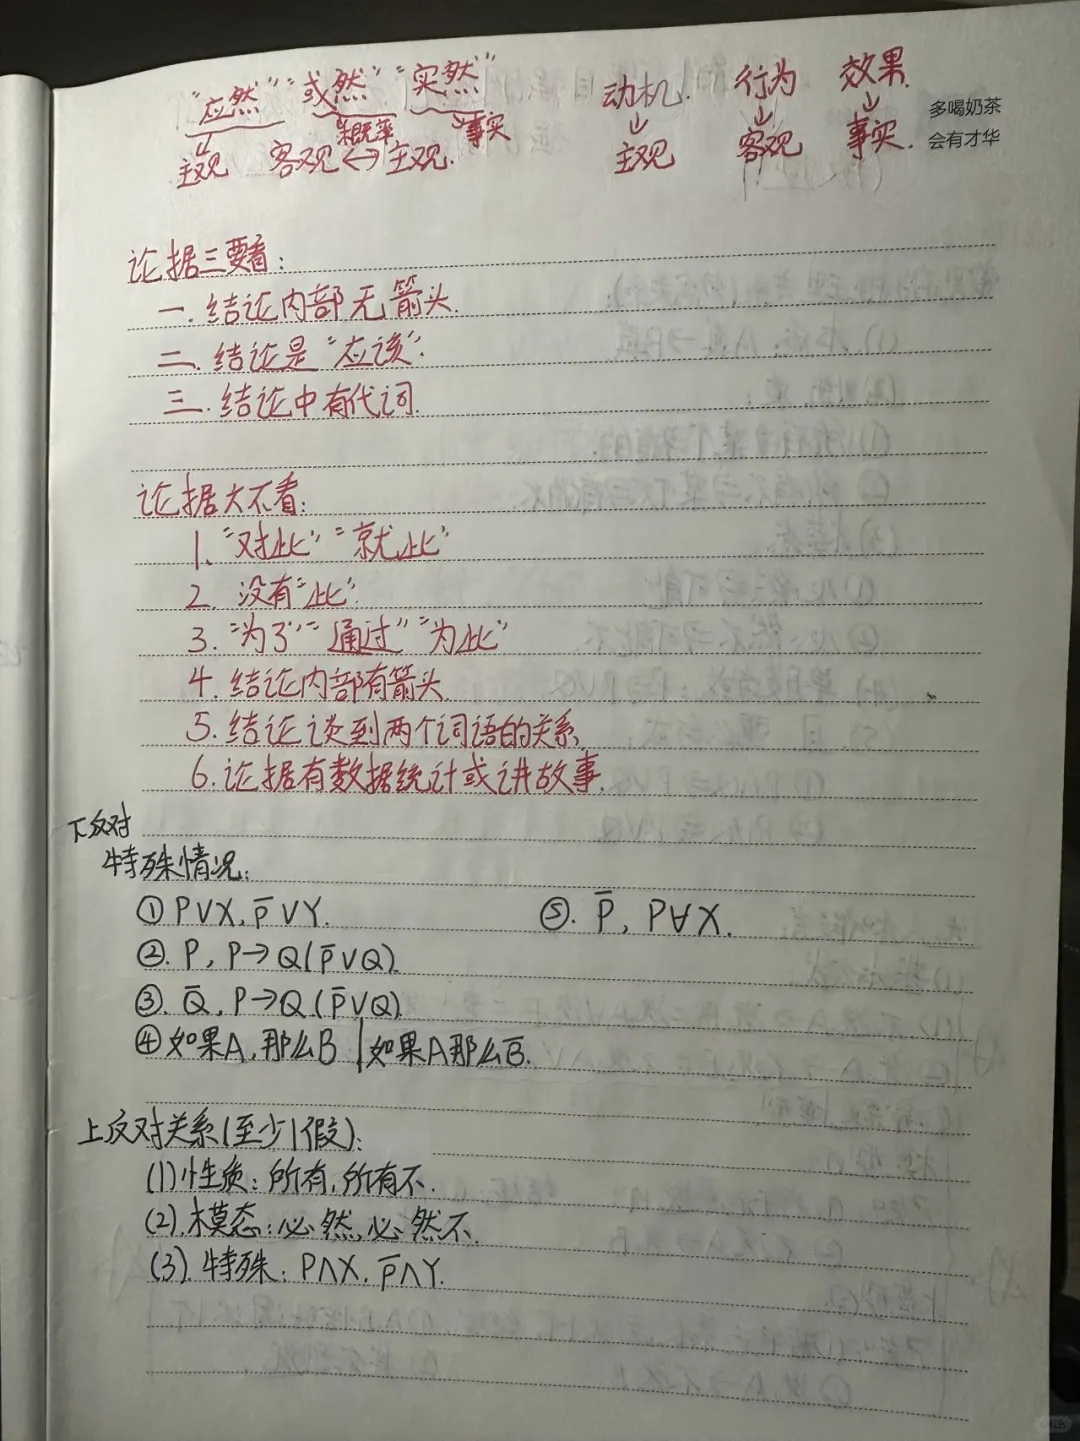 "应然" "或然" "实然"
概率 事实
主观 客观↔主观.
动机. 行为 效果.
↓ ↓ ↓
主观 客观 事实.
多喝奶茶
会有才华
论据三要看:
一. 结论内部无箭头.
二. 结论是"应该".
三. 结论中有代词.
论据大不看:
1. "对此" "就此"
2. 没有"此"
3. "为了" "通过" "为此"
4. 结论内部有箭头.
5. 结论谈到两个词语的关系.
6. 论据有数据统计或讲故事.
下反对
特殊情况:
① P∨X, P̅∨Y.
⑤. P̅, P∀X.
②. P, P→Q(P̅∨Q)
③. Q̅, P→Q(P̅∨Q)
④如果A,那么B | 如果A那么B̅.
上反对关系(至少1假):
(1)性质: 所有,所有不.
(2).模态: 必然,必然不.
(3). 特殊: P∧X, P̅∧Y.